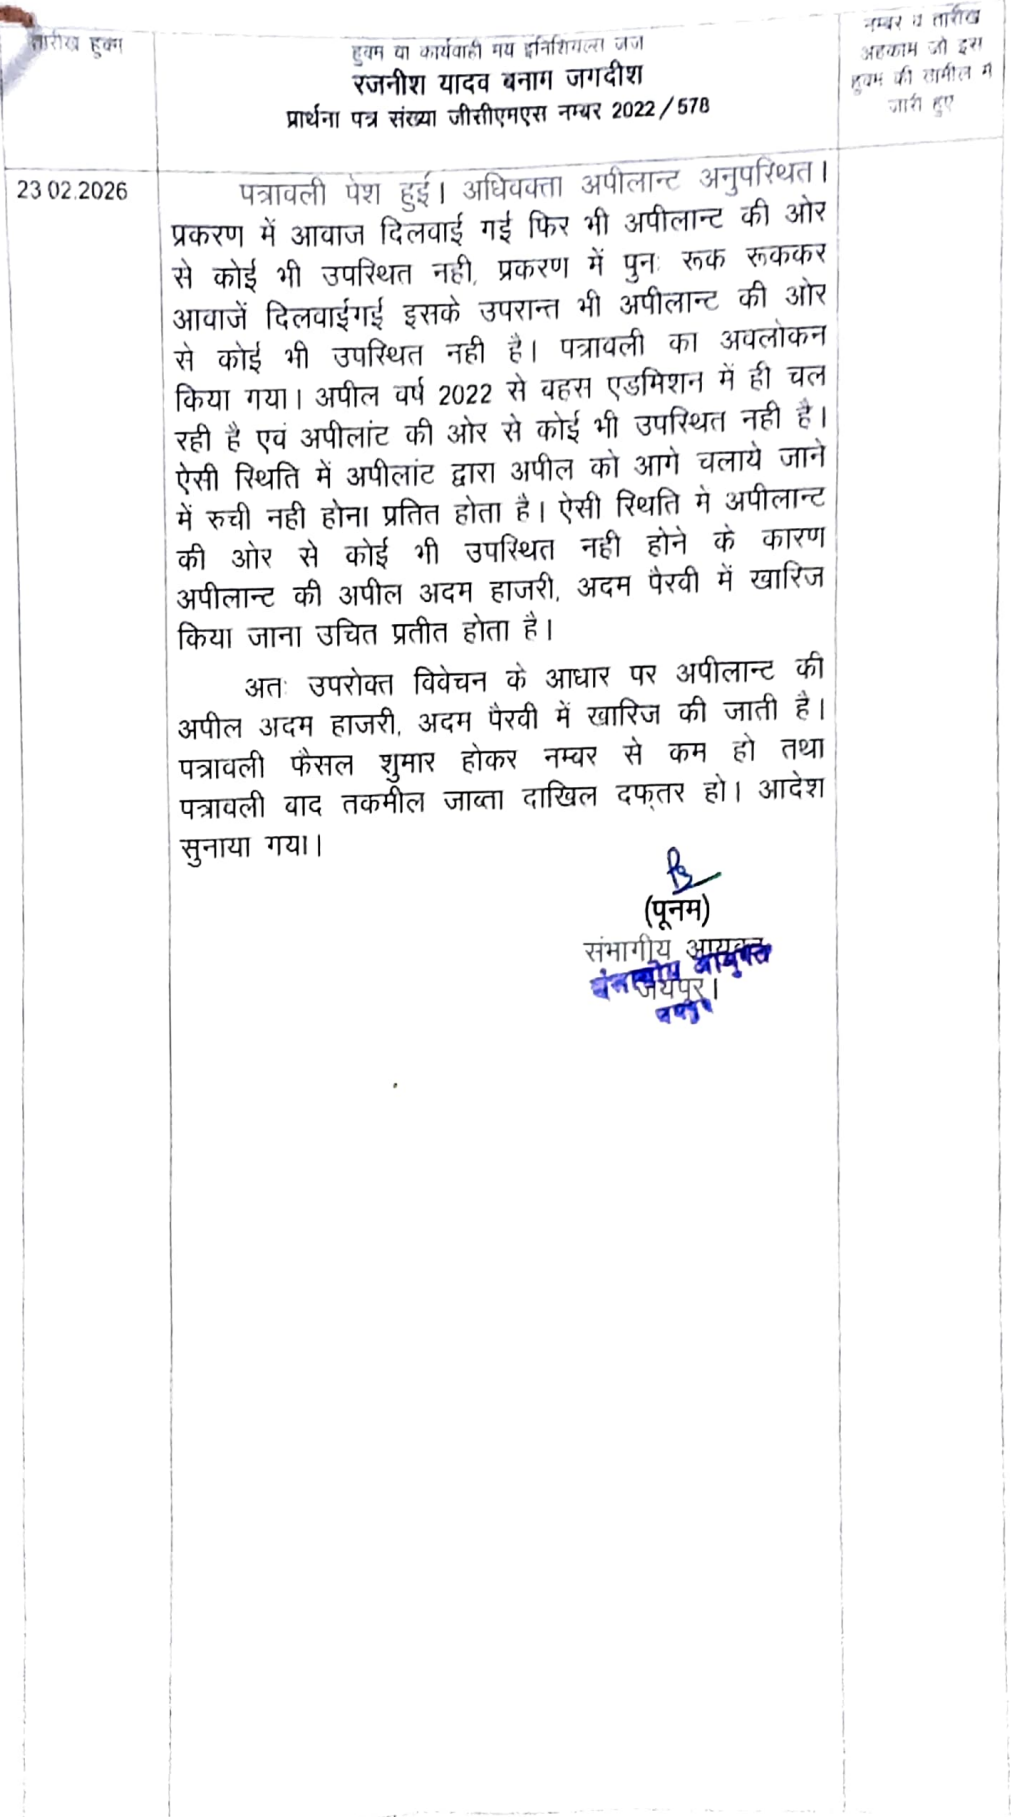 तारीख हुक्म
हुक्म या कार्यवाही मय इनिशियल्स जज
रजनीश यादव बनाम जगदीश
प्रार्थना पत्र संख्या जीसीएमएस नम्बर 2022/578
नम्बर व तारीख
अहकाम जो इस
हुक्म की तामील में
जारी हुए
23.02.2026
पत्रावली पेश हुई। अधिवक्ता अपीलान्ट अनुपस्थित।
प्रकरण में आवाज दिलवाई गई फिर भी अपीलान्ट की ओर
से कोई भी उपस्थित नही, प्रकरण में पुनः रूक रूककर
आवाजें दिलवाईगई इसके उपरान्त भी अपीलान्ट की ओर
से कोई भी उपस्थित नही है। पत्रावली का अवलोकन
किया गया। अपील वर्ष 2022 से वहस एडमिशन में ही चल
रही है एवं अपीलांट की ओर से कोई भी उपस्थित नही है।
ऐसी स्थिति में अपीलांट द्वारा अपील को आगे चलाये जाने
में रुची नही होना प्रतित होता है। ऐसी स्थिति मे अपीलान्ट
की ओर से कोई भी उपस्थित नही होने के कारण
अपीलान्ट की अपील अदम हाजरी, अदम पैरवी में खारिज
किया जाना उचित प्रतीत होता है।
अतः उपरोक्त विवेचन के आधार पर अपीलान्ट की
अपील अदम हाजरी, अदम पैरवी में खारिज की जाती है।
पत्रावली फैसल शुमार होकर नम्बर से कम हो तथा
पत्रावली वाद तकमील जाव्ता दाखिल दफ्तर हो। आदेश
सुनाया गया।
(पूनम)
संभागीय आयुक्त
संभागीय आयुक्त
जयपुर।
जयपुर